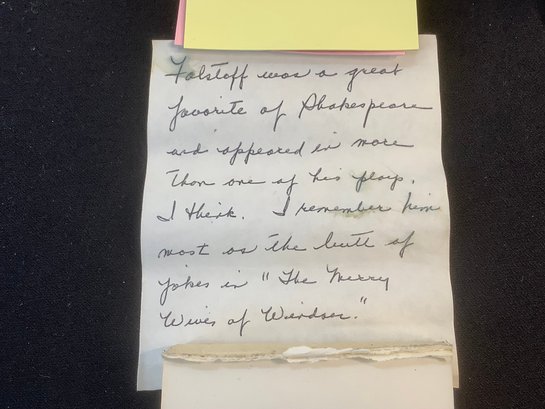 Falstaff was a great
favorite of Shakespeare
and appeared in more
than one of his plays,
I think. I remember him
most as the butt of
jokes in "The Merry
Wives of Windsor."